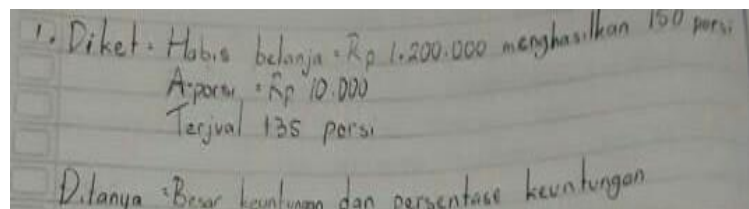 1. Diket : Habis belanja = Rp 1.200.000 menghasilkan 150 porsi
A porsi = Rp 10.000
Terjual 135 porsi
Ditanya : Besar keuntungan dan persentase keuntungan